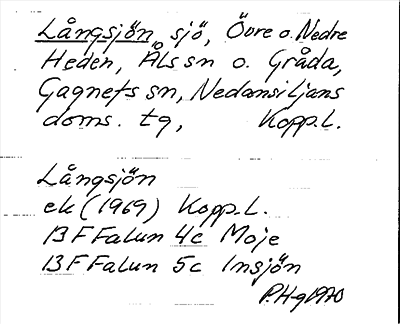 Långsjön sjö, Övre o. Nedre
Heden, Åls sn o. Gråda,
Gagnefs sn, Nedansiljans
doms. tg, Kopp.l.
Långsjön
ek (1969) Kopp.l.
13 F Falun 4c Moje
13 F Falun 5c Insjön
P.H-g 1970